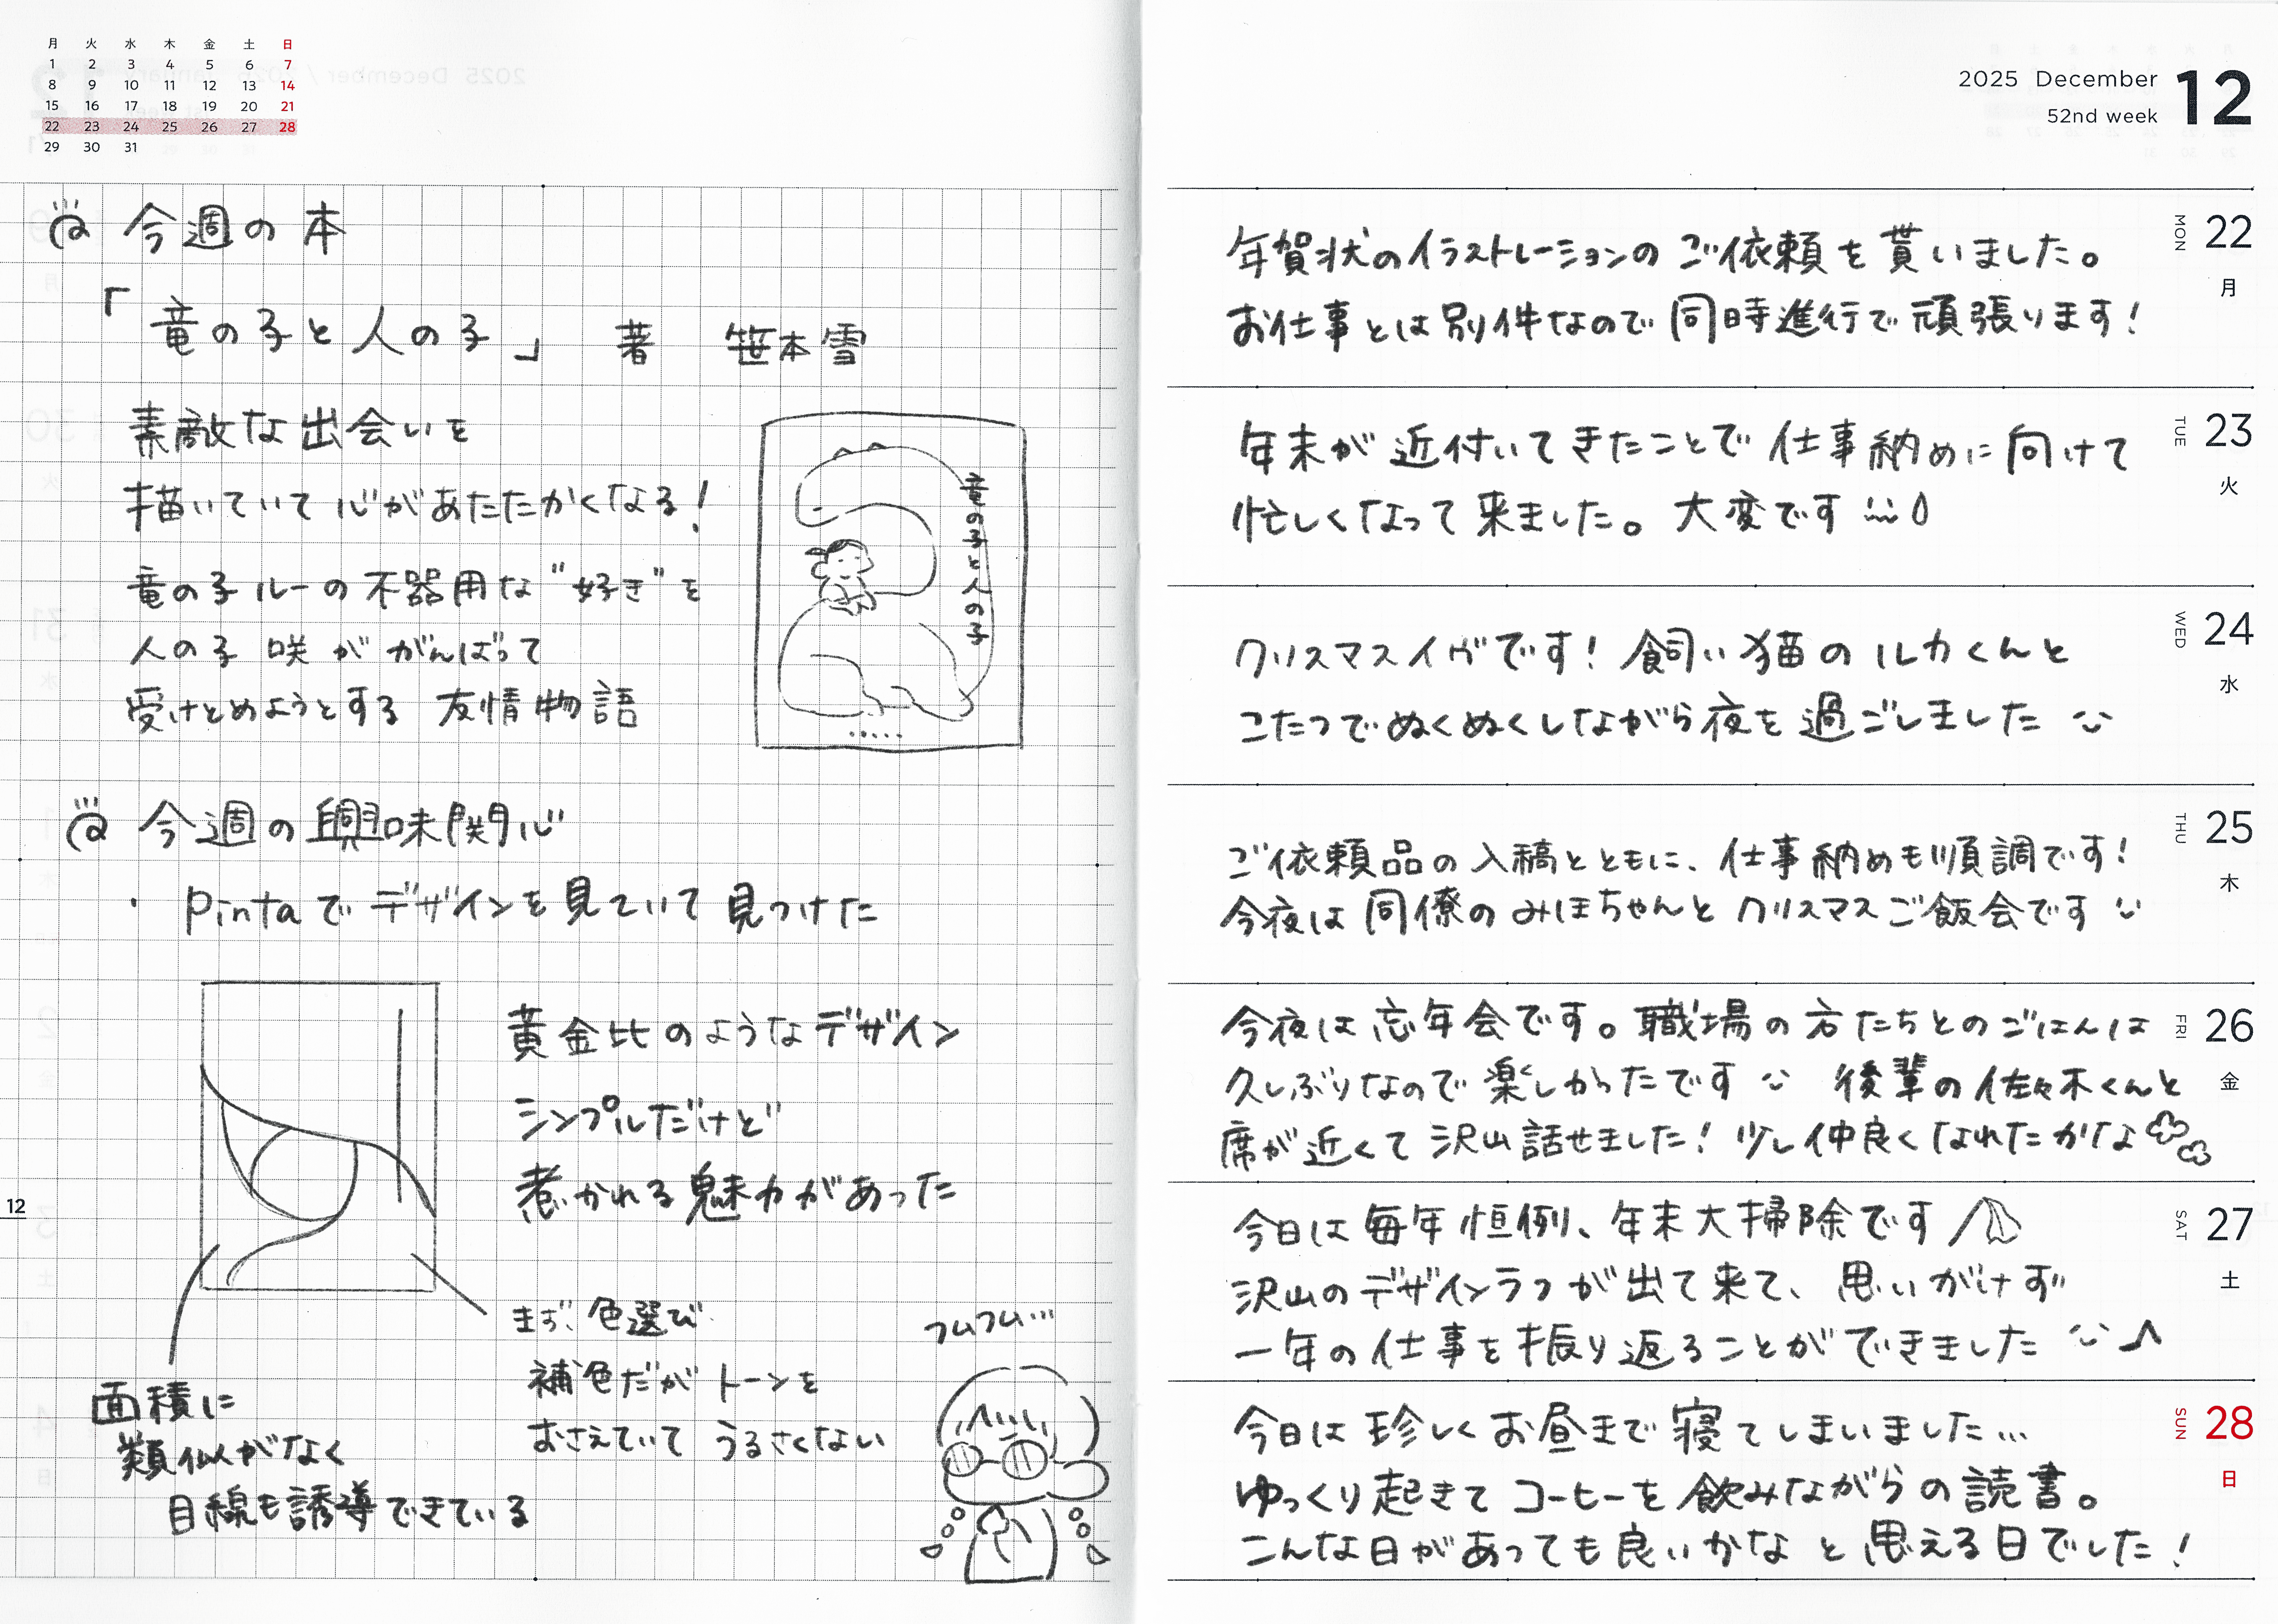 月 火 水 木 金 土 日
1 2 3 4 5 6 7
8 9 10 11 12 13 14
15 16 17 18 19 20 21
22 23 24 25 26 27 28
29 30 31
今週の本
「竜の子と人の子」 著 笹本雪
素敵な出会いを
描いていて心があたたかくなる！
竜の子ルーの不器用な"好き"を
人の子 咲が がんばって
受けとめようとする 友情物語
竜の子と人の子
今週の興味関心
・Pintaでデザインを見ていて見つけた
黄金比のようなデザイン
シンプルだけど
惹かれる魅力があった
まず、色選び
補色だがトーンを
おさえていて うるさくない
面積に
類似がなく
目線も誘導できている
フムフム…
12
2025 December 12
52nd week
22 MON 月
年賀状のイラストレーションのご依頼を貰いました。
お仕事とは別件なので同時進行で頑張ります！
23 TUE 火
年末が近付いてきたことで仕事納めに向けて
忙しくなって来ました。大変です
24 WED 水
クリスマスイヴです！飼い猫のルカくんと
こたつでぬくぬくしながら夜を過ごしました
25 THU 木
ご依頼品の入稿とともに、仕事納めも順調です！
今夜は同僚のみほちゃんとクリスマスご飯会です
26 FRI 金
今夜は忘年会です。職場の方たちとのごはんは
久しぶりなので楽しかったです 後輩の佐々木くんと
席が近くて沢山話せました！少し仲良くなれたかな
27 SAT 土
今日は毎年恒例、年末大掃除です
沢山のデザインラフが出て来て、思いがけず
一年の仕事を振り返ることができました ♪
28 SUN 日
今日は珍しくお昼まで寝てしまいました…
ゆっくり起きてコーヒーを飲みながらの読書。
こんな日があっても良いかなと思える日でした！